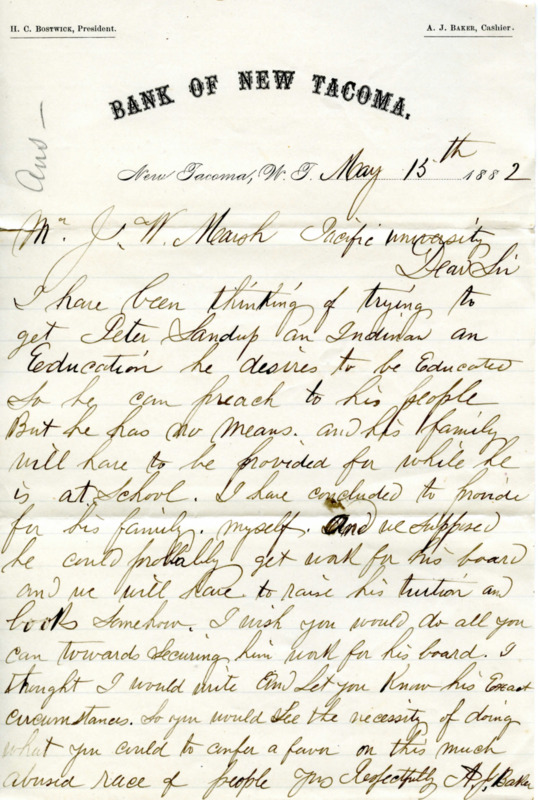 H. C. Bostwick, President. A. J. Baker, Cashier.
BANK OF NEW TACOMA.
Ans —
New Tacoma, W. T. May 15th 1882
Mr. J. W. Marsh Pacific university
Dear Sir
I have been thinking of trying to
get Peter Sandup an Indinan an
Education he desires to be Educated
So he can preach to his people
But he has no means. and his family
will have to be provided for while he
is at School. I have concluded to provide
for his family. myself. And we supposed
he could probbaly get work for his board
and we will have to raise his tuition and
books Somehow. I wish you would do all you
can towards Securing him work for his board. I
thought I would write and Let you Know his Exact
circumstances. So you would See the necessity of doing
what you could to confer a favor on this much
abused race of people yrs Respectfully A. J. Baker